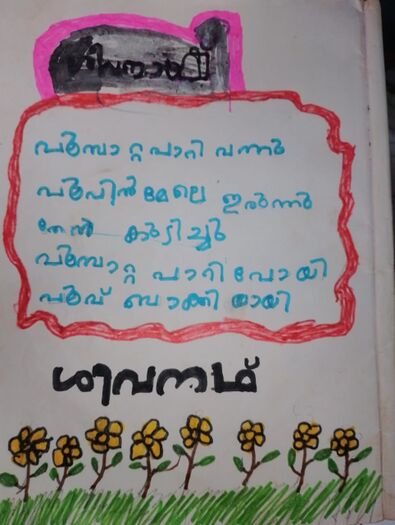 പൂമ്പാറ്റ പാറി വന്നു
പൂവിൻ മേലെ ഇരുന്നു
തേൻ കുടിച്ചു
പൂമ്പാറ്റ പാറി പോയി
പൂവ് ബാക്കി യായി
ശിവനഥ്